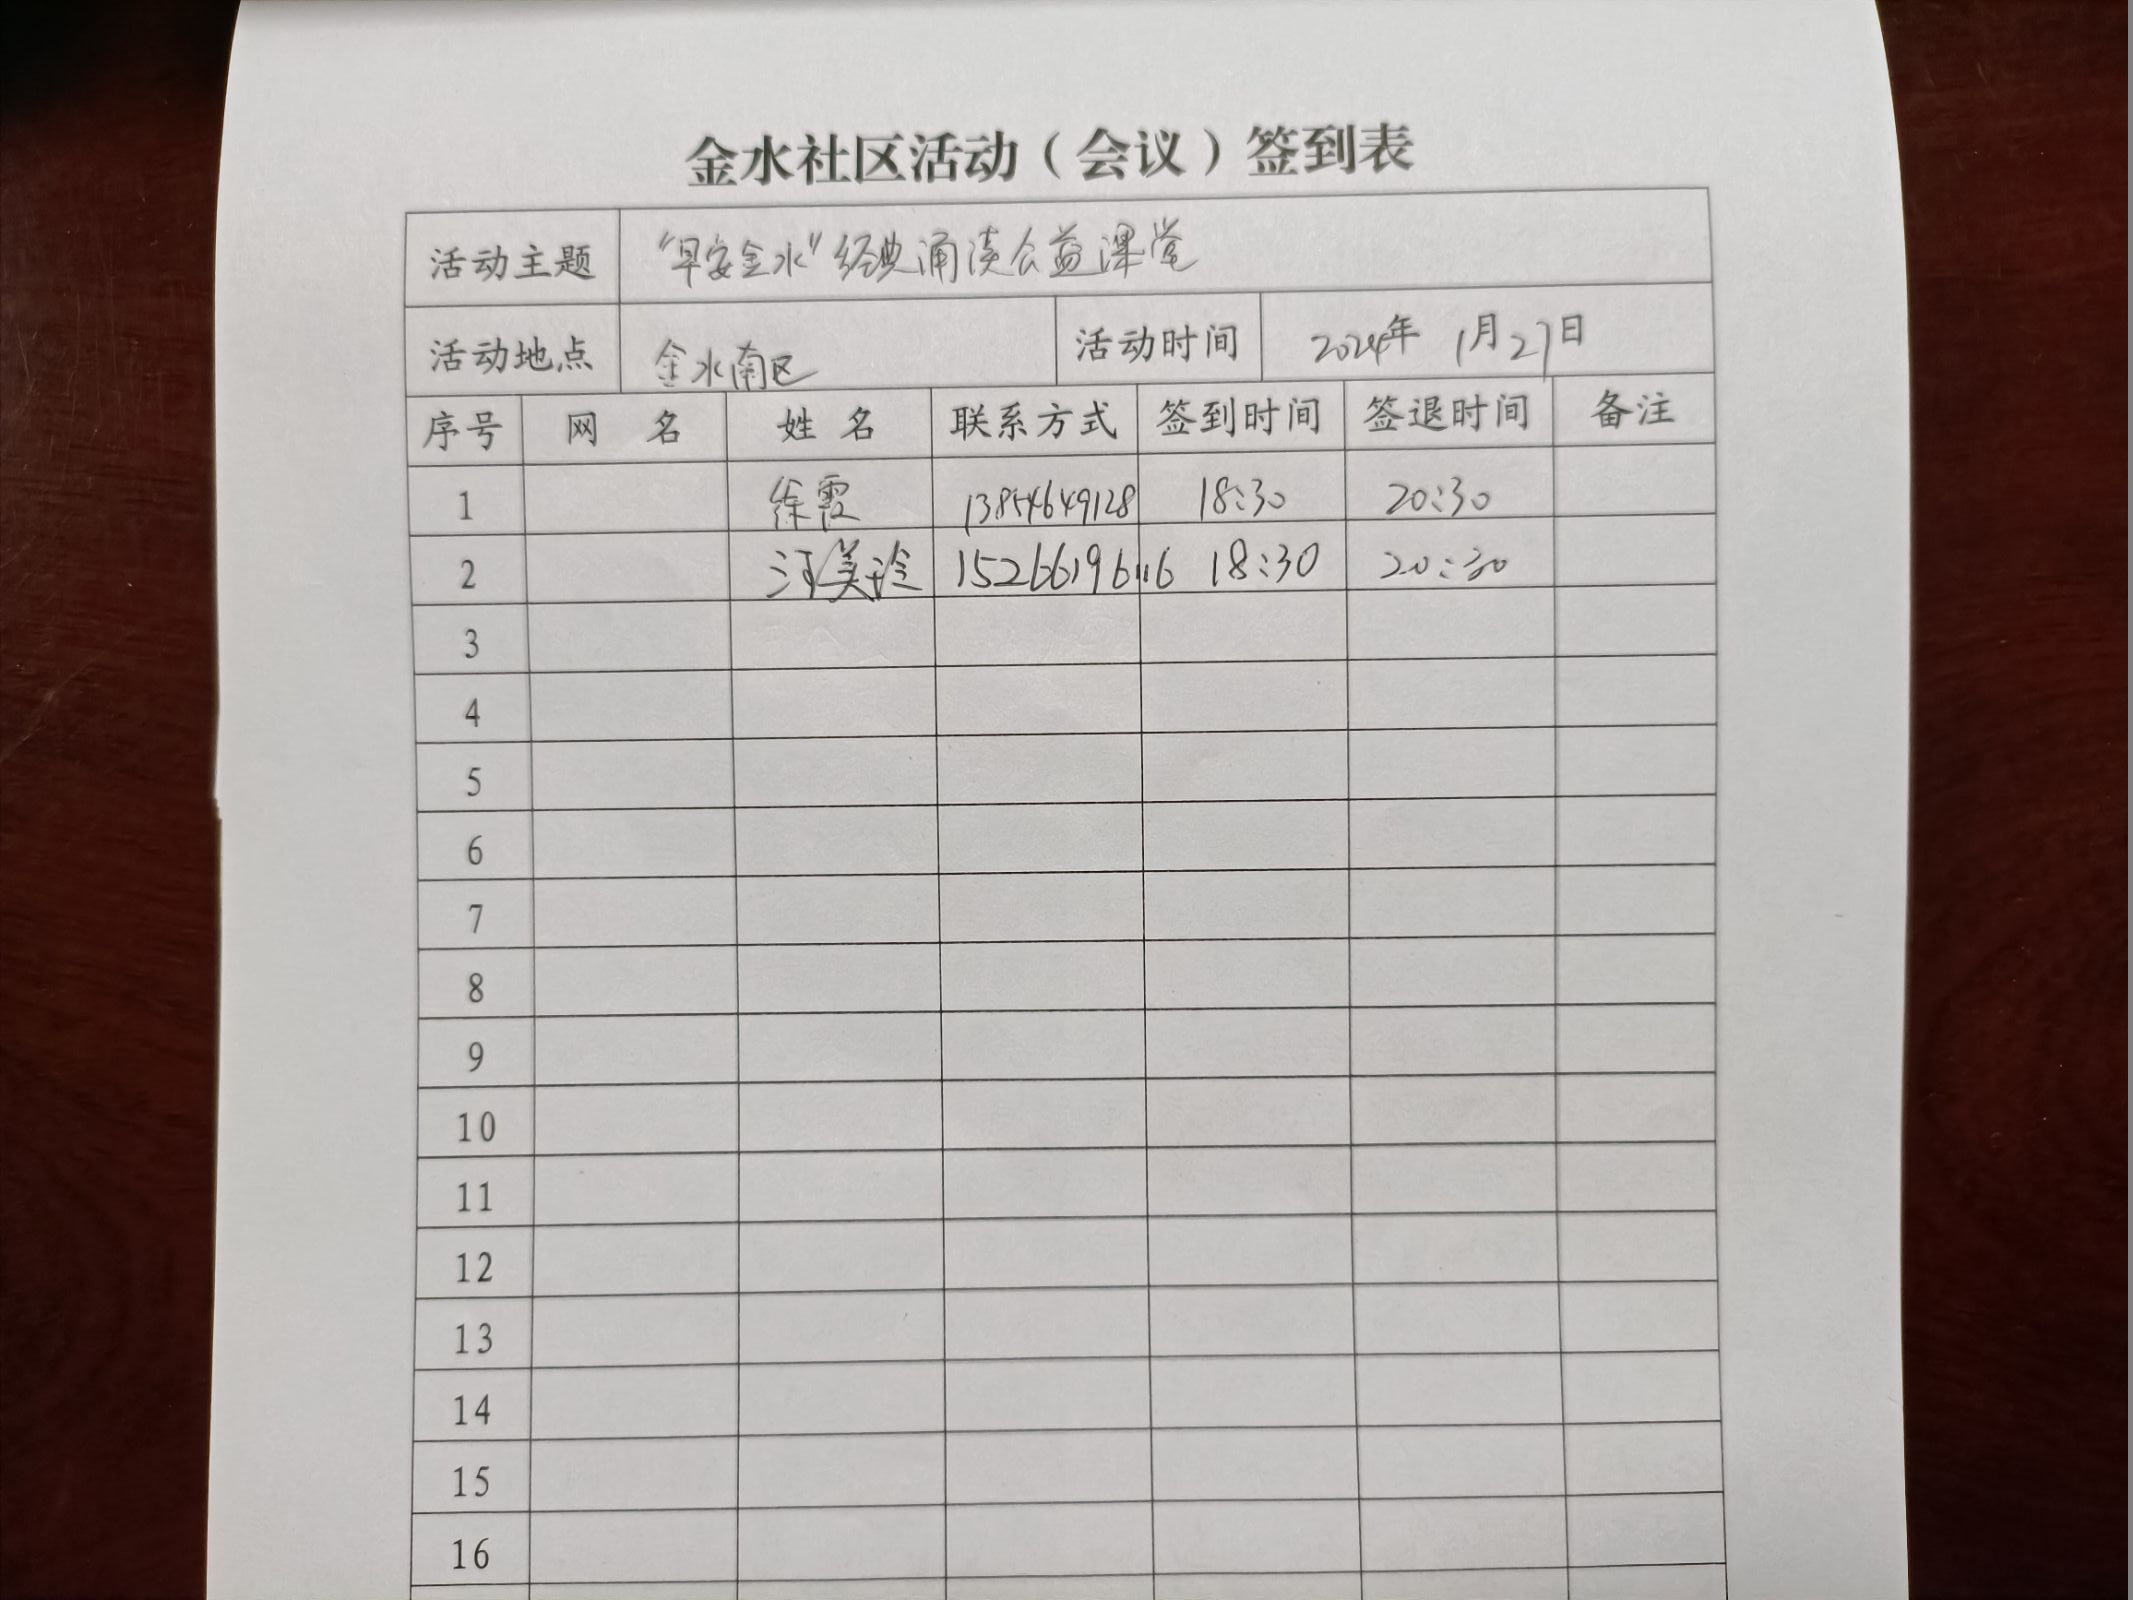 金水社区活动（会议）签到表
活动主题 “早安金水”经典诵读公益课堂
活动地点 金水南区 活动时间 2024年 1月27日
序号 网 名 姓 名 联系方式 签到时间 签退时间 备注
1 徐霞 13854649128 18:30 20:30
2 美玲 18:30 20:30
3
4
5
6
7
8
9
10
11
12
13
14
15
16